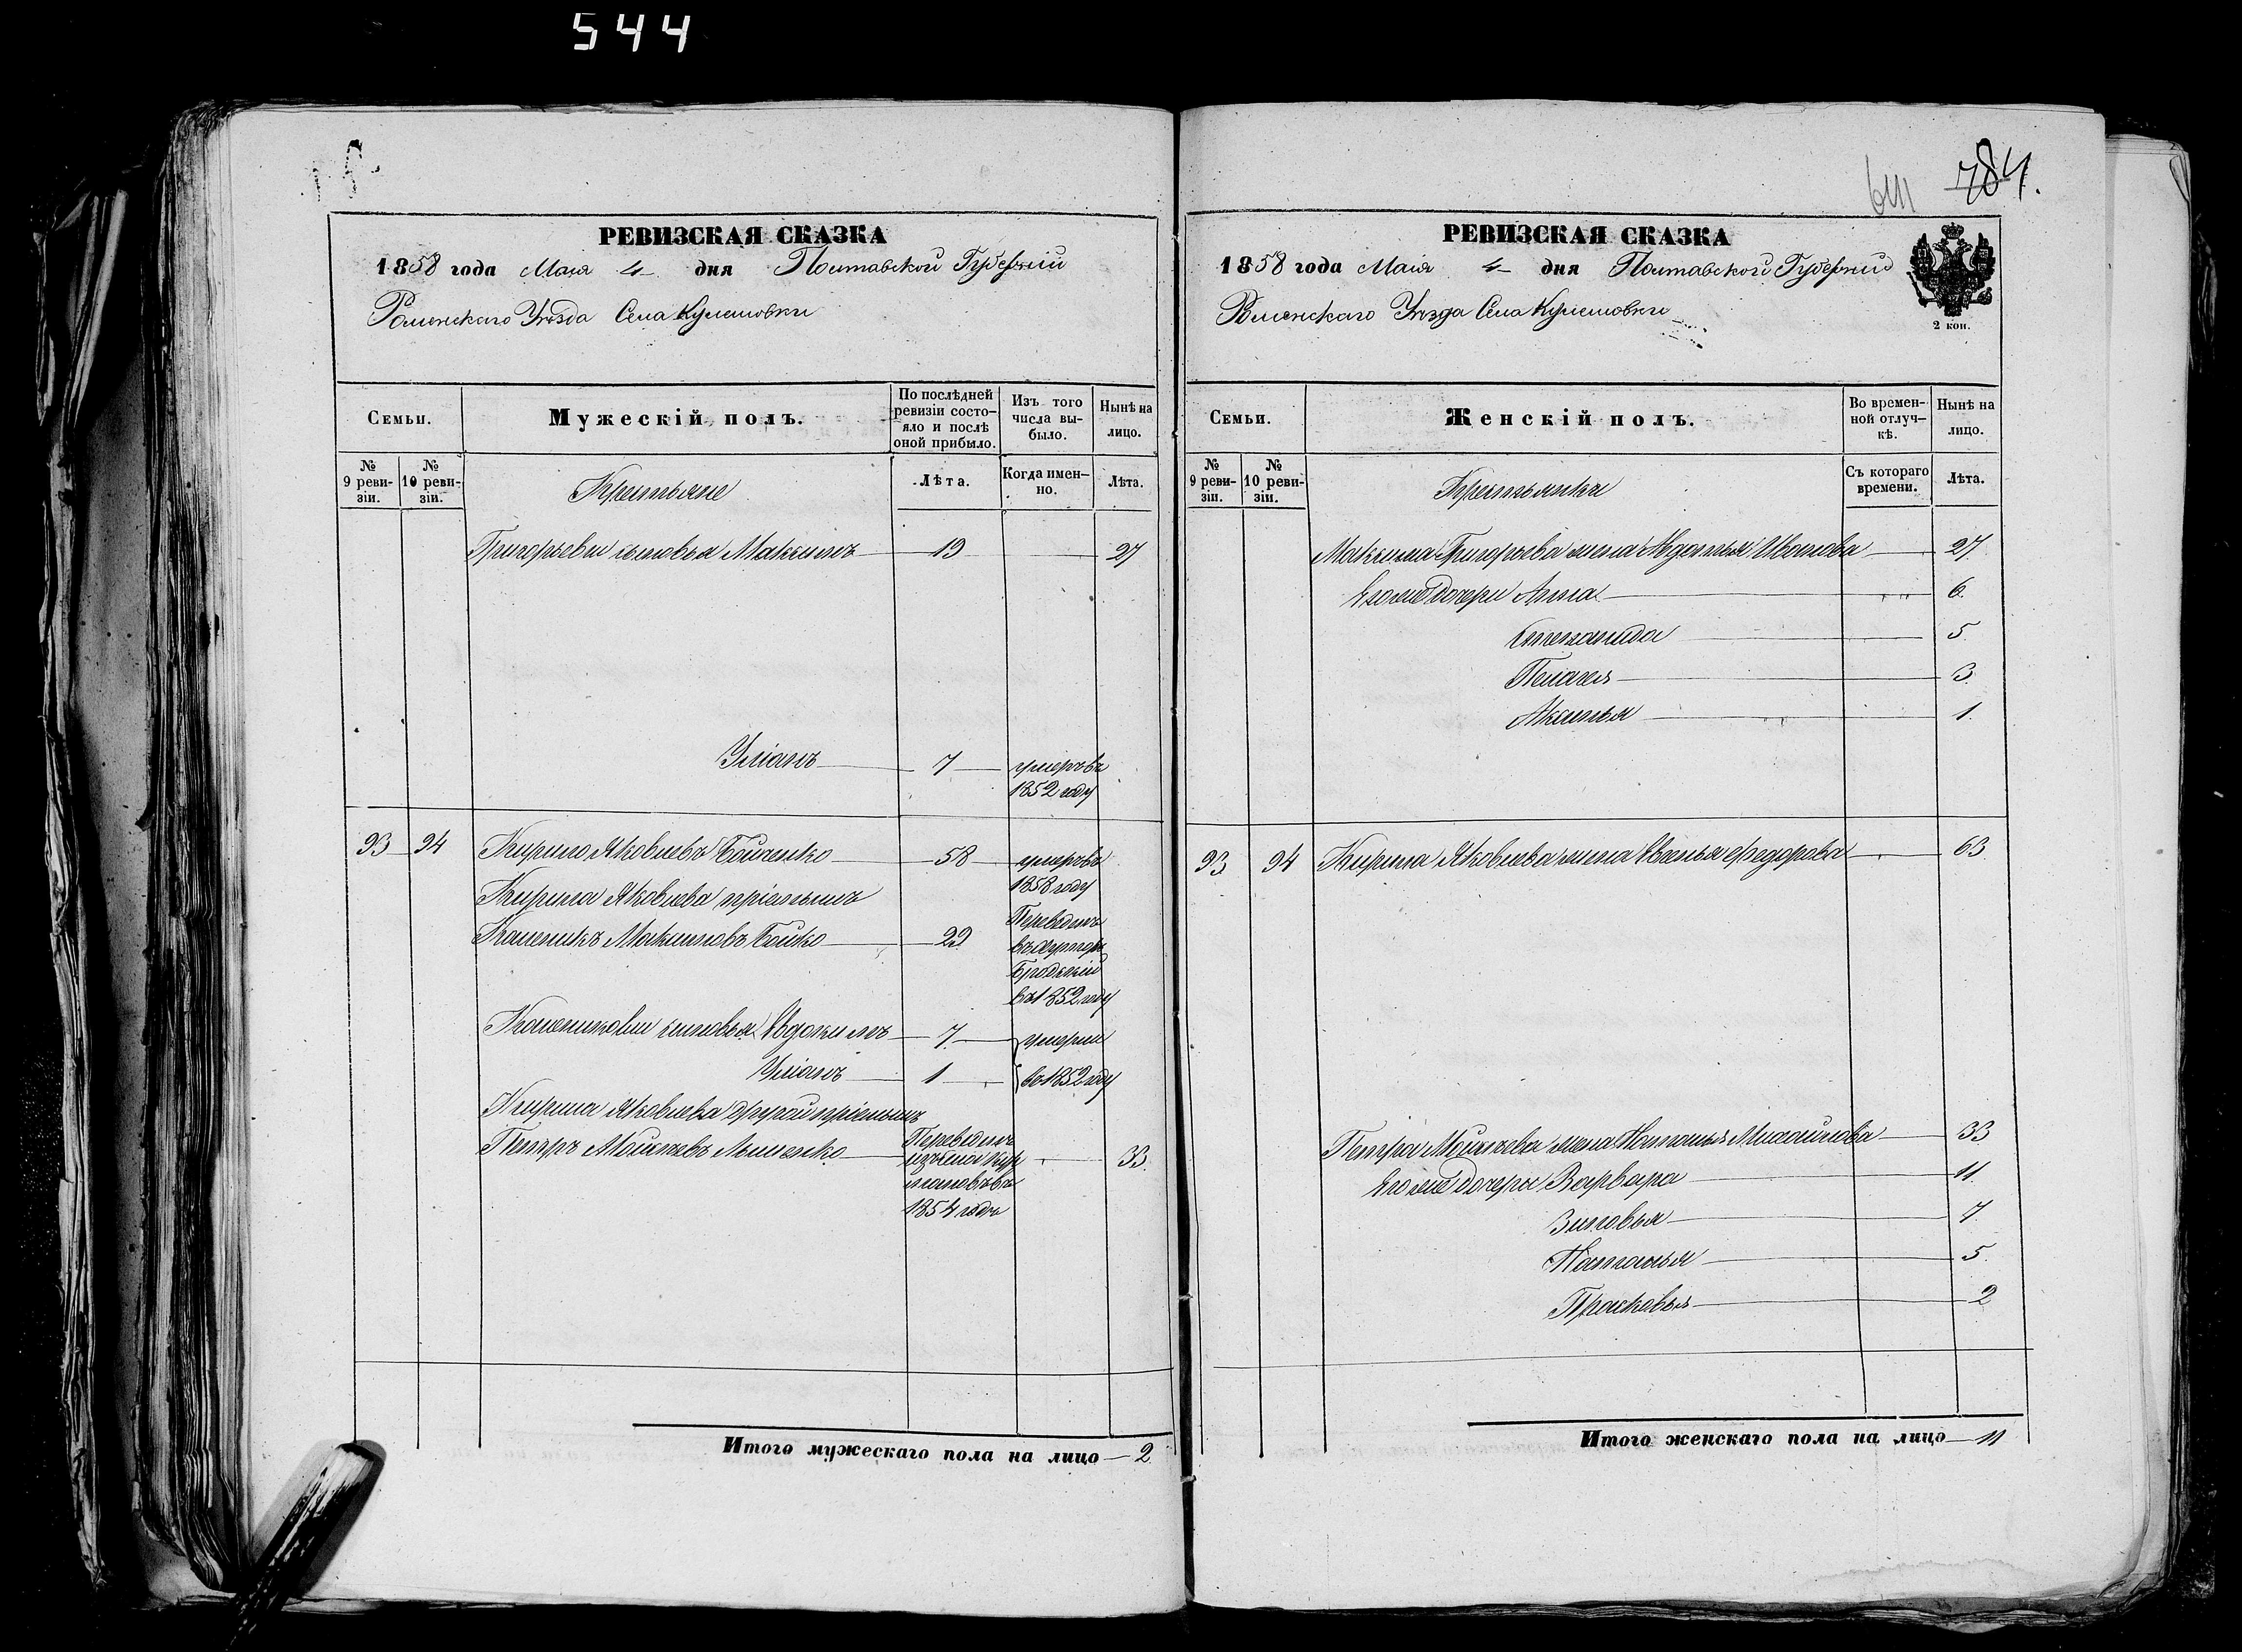 544
641 784.
РЕВИЗСКАЯ СКАЗКА
1858 года Маія 4 дня Полтавской Губерніи
Роменскаго Уѣзда Села Кулешовки
Семьи.
Мужескій полъ.
По послѣдней ревизіи состояло и послѣ оной прибыло.
Изъ того числа выбыло.
Нынѣ на лицо.
№ 9 ревизіи.
№ 10 ревизіи.
Крестьяне
Лѣта.
Когда именно.
Лѣта.
Григорьевы сыновья Максимъ 19 27
Уліанъ 7 умеръ въ
1852 году
93 94 Кирило Яковлевъ Бойченко 58 умеръ въ
1858 году
Кирила Яковлева пріемышъ
Каленикъ Максимовъ Бойко 29 Переведенъ
въ хуторъ
въ 1852 году
Калениковы сыновья Евдокимъ 7 умерли
Уліанъ 1 въ 1852 году
Кирила Яковлева другой пріемышъ
Петръ Мойсеевъ 33
Переведенъ
изъ села
1854 года
Итого мужескаго пола на лицо 2
РЕВИЗСКАЯ СКАЗКА
1858 года Маія 4 дня Полтавской Губерніи
Роменскаго Уѣзда Села Кулешовки
2 коп.
Семьи.
Женскій полъ.
Во временной отлучкѣ.
Нынѣ на лицо.
№ 9 ревизіи.
№ 10 ревизіи.
Крестьянки
Съ котораго времени.
Лѣта.
Максима Григорьева жена Авдотья Иванова 27
Его же дочери Анна 6.
Степанида 5.
Пелагея 3.
Аксинья 1.
93 94 Кирила Яковлева жена Евгенья Федорова 63.
Петра Мойсеева жена Наталья Михайлова 33
Его же дочери Варвара 11.
Зиновья 7.
Наталья 5.
Прасковья 2
Итого женскаго пола на лицо 11